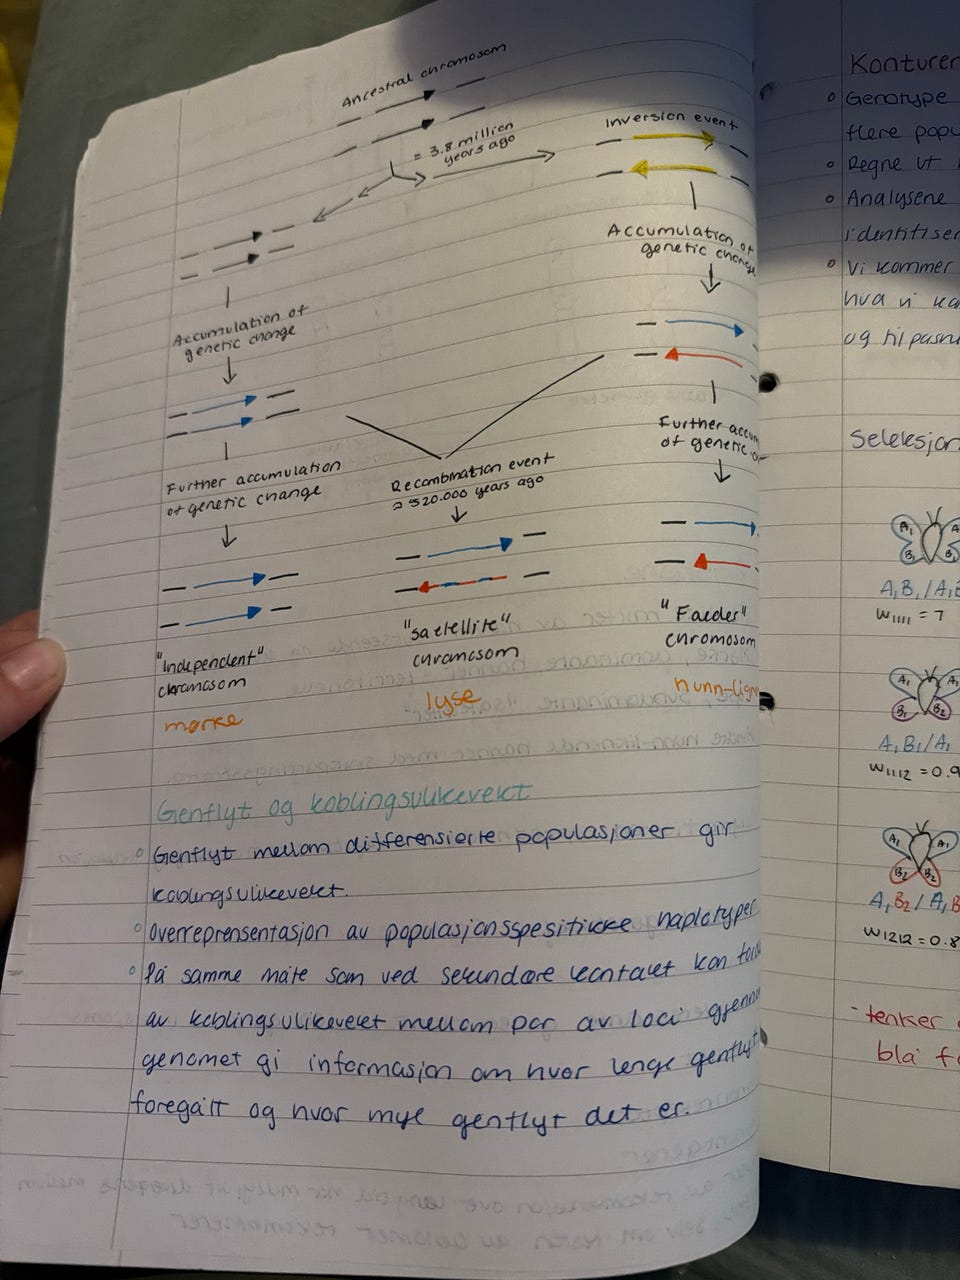 Ancestral chromosom
≈ 3.8 million
years ago
Inversion event
Accumulation of
genetic change
Accumulation of
genetic change
Further accumulation
of genetic change
Recombination event
≈ 520.000 years ago
Further accum
of genetic
"Independent"
chromosom
mørke
"satellite"
chromosom
lyse
"Faeder"
chromosom
hunn-lign
Genflyt og koblingsulikevekt
Genflyt mellom differensierte populasjoner gir
koblingsulikevekt.
Overreprensentasjon av populasjonsspesifikke haplotyper
På samme måte som ved sekundære kontaket kan
av koblingsulikeveket mellom par av loci gjenno
genomet gi informasjon om hvor lenge genflyt
foregått og hvor mye genflyt det er.
Konturer
Genotype
flere popu
Regne ut
Analysene
identifise
Vi kommer
hva vi ka
og tilpasn
Seleksjon
A1 A
B1
A1B1/A1B
W1111 = 7
A1 A1
B1 B2
A1B1/A1
W1112 = 0.9
A1 A1
B2 B2
A1B2/A1B
W1212 = 0.8
- tenker
blå f